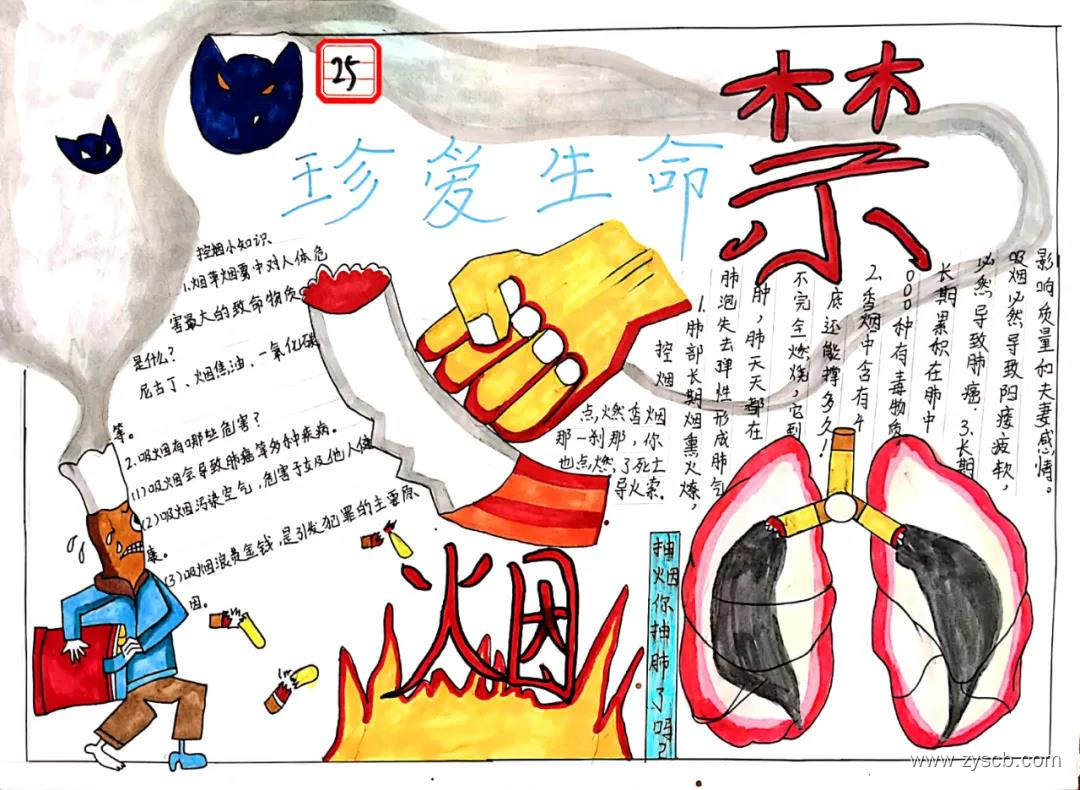 25
珍爱生命
禁
烟
控烟小知识
1.烟草烟雾中对人体危
害最大的致命物质
是什么?
尼古丁、烟焦油、一氧化碳
等。
2.吸烟有哪些危害?
(1)吸烟会导致肺癌等多种疾病。
(2)吸烟污染空气,危害子女及他人健
康。
(3)吸烟浪费金钱,是引发犯罪的主要原
因。
点燃香烟
那一刹那,你
也点燃了死亡
导火索。
控烟
1.肺部长期烟熏火燎,
肺泡失去弹性形成肺气
肿,肺天天都在
不完全燃烧,它到
底还能撑多久!
2.香烟中含有4
000种有毒物质
长期累积在肺中
必然导致肺癌.3.长期
吸烟必然导致阳痿疲软,
影响质量和夫妻感情。
抽烟你抽肺了吗?
www.zyscb.com